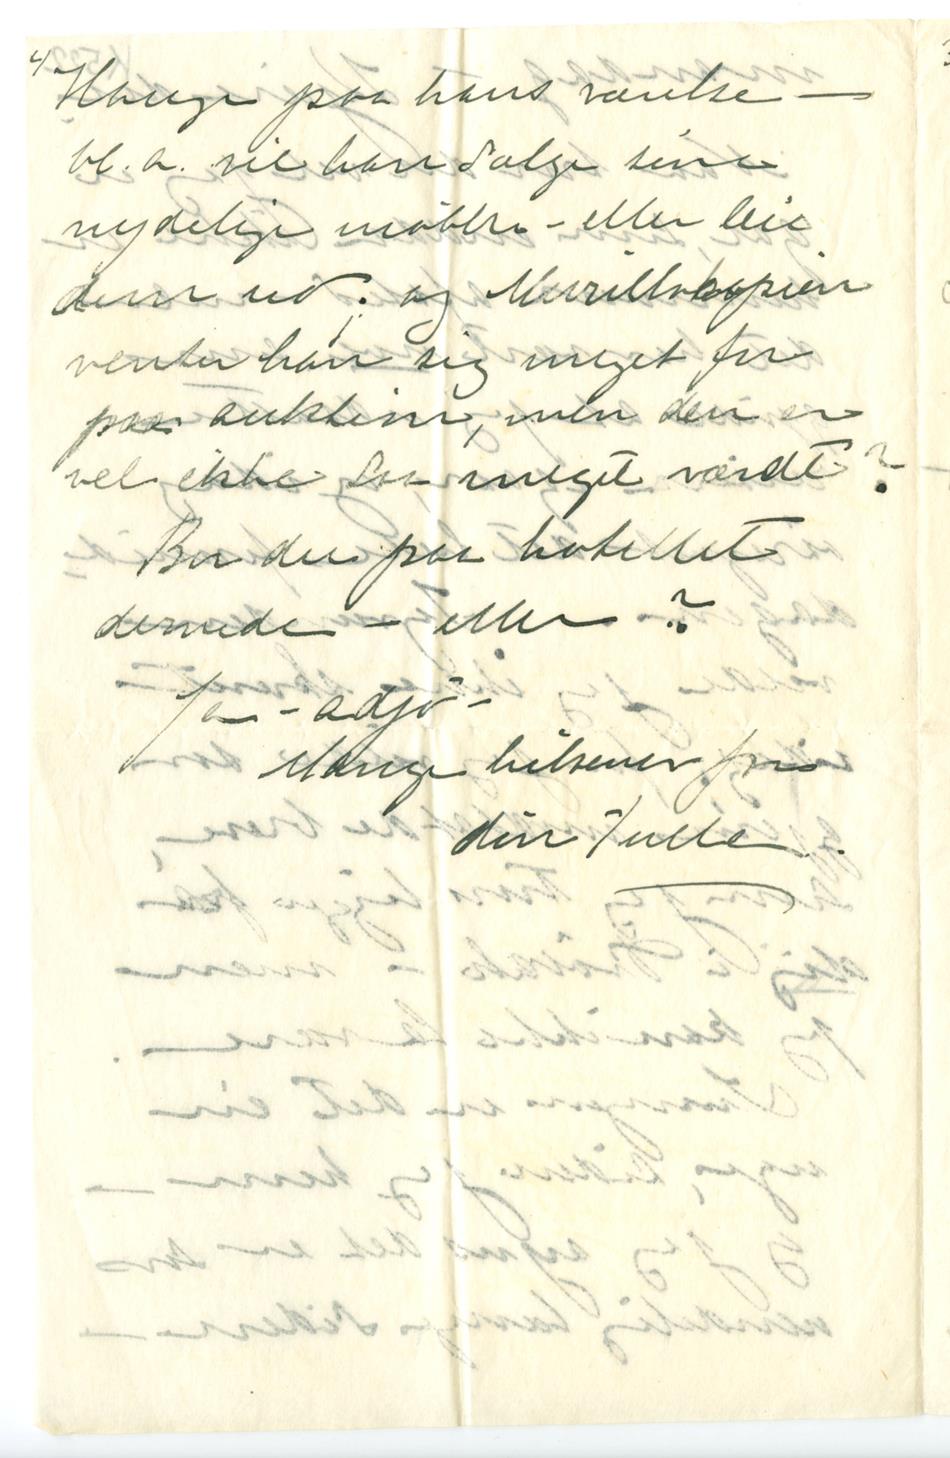 4/
Hauge paa hans værelse —
bl. a. vil han sælge sine
nydelige møbler - eller leie
dem ud; og Murillokopien
venter han sig meget for
paa auktion, men den er
vel ikke saa meget værdt?
Bor du paa hotellet
dernede - eller ?
Ja - adjø -
Mange hilsener fra
din Tulla.